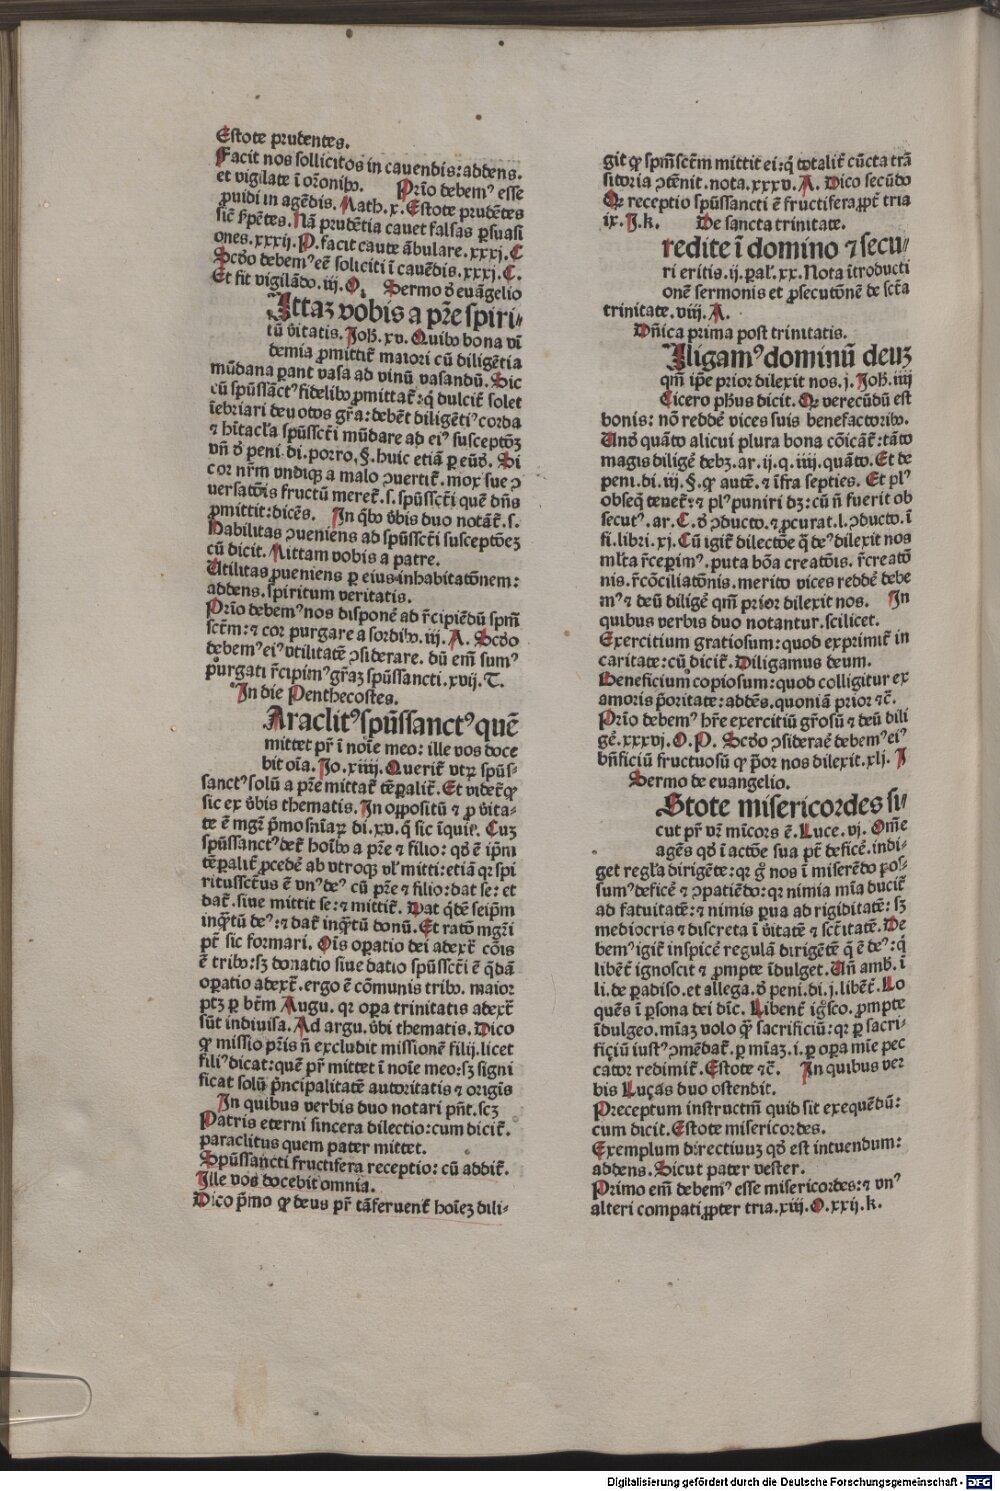 Estote prudentes.
Facit nos sollicitos in cavendis: addens.
et vigilate ī orōnibꝰ. Prīo debemꝰ esse
ꝓuidi in agēdis. Math. x. Estote prudētes
sic̄ serpētes. Nā prudētia cauet falsas ꝑsuasi
ones. xxxij. P. facit caute ābulare. xxxj. C
Scdo debemꝰ eē soliciti ī cauēdis. xxxj. C.
Et sit vigilādo. iij. O. Sermo d̄ euāgelio
Ittaꝫ vobis a prē spiri⸗
tū v̄itatis. Joh̄. xv. Quibꝰ bona vī
demia ꝓmittit̄ maiori cū diligētia
mūdana parant vasa ad vinū vasandū. Sic
cū spūssāctꝰ fidelibꝰ ꝓmittat̄: qͥ dulcit̄ solet
īebriari deuotos gr̄a: debēt diligētiꝰ corda
⁊ hītacl̄a spūssct̄i mūdare ad eiꝰ susceptōꝫ
vn̄ d̄ peni. di. porro. §. huic etiā ꝑ eūd̄. Si
cor nr̄m vndiqꝫ a malo ꝯuertit̄. mox sue ꝯ
uersatōis fructū meret̄. s. spūssct̄i quē dn̄s
ꝓmittit: dicēs. In qͥbꝰ v̄bis duo notāt̄. s.
Habilitas ꝯueniens ad spūssct̄i susceptōeꝫ
cū dicit. Mittam vobis a patre.
Utilitas ꝓueniens ꝑ eius inhabitatōnem:
addens. spiritum veritatis.
Prīo debemꝰ nos disponē ad r̄cipiēdū spm̄
sct̄m: ⁊ cor purgare a sordibꝰ. iij. A. Scdo
debemꝰ eiꝰ vtilitatē ꝯsiderare. dū em̄ sumꝰ
purgati r̄cipimꝰ gr̄aꝫ spūssancti. xvij. T.
In die Penthecostes.
Araclitꝰ spūssanctꝰ quē
mittet pr̄ ī noīe meo: ille vos doce
bit oīa. Jo. xiiij. Querit̄ vtꝝ spūs⸗
sanctꝰ solū a prē mittat̄ tēꝑalit̄. Et videt̄ ꝙ
sic ex v̄bis thematis. In oppositū ⁊ ꝓ v̄ita⸗
te ē mgr̄ pͥmo sniaꝝ di. xv. q̄ sic īquit. Cuꝫ
spūssanctꝰ det̄ hoībꝰ a prē ⁊ filio: qd̄ ē ipm̄
tēꝑalit̄ ꝓcedē ab vtroqꝫ vl̄ mitti: etiā qr spi
ritussct̄us ē vnꝰ deꝰ cū prē ⁊ filio: dat se: et
dat̄. siue mittit se: ⁊ mittit̄. Dat qͥdē seipm̄
inqͣtū deꝰ: ⁊ dat̄ inqͣtū donū. Et ratō mgr̄i
pt̄ sic formari. Oīs oꝑatio dei adext̄ cōis
ē tribꝰ: sꝫ donatio siue datio spūssct̄i ē qͣdā
oꝑatio adext̄. ergo ē cōmunis tribꝰ. maior
ptꝫ ꝑ btm̄ Augu. qr opa trinitatis adext̄
sūt indiuisa. Ad argu. v̄bi thematis. Dico
ꝙ missio prīs n̄ excludit missionē filij. licet
filiꝰ dicat: quē pr̄ mittet ī noīe meo: sꝫ signi
ficat solū pͥncipalitatē autoritatis ⁊ origīs
In quibus verbis duo notari pn̄t. scꝫ
Patris eterni sincera dilectio: cum dicit̄.
paraclitus quem pater mittet.
Spūssancti fructifera receptio: cū addit̄.
Ille vos docebit omnia.
Dico pͥmo ꝙ deus pr̄ tā feruent̄ hoīeꝫ dili⸗
git ꝙ spm̄sct̄m mittit ei: qͥ totalit̄ cūcta trā
sitoria ꝯtēnit. nota. xxxv. A. Dico secūdo
Qꝙ receptio spūssancti ē fructifera ꝓpt̄ tria
ix. J. k. De sancta trinitate.
redite ī domino ⁊ secu⸗
ri eritis. ij. ꝑal̄. xx. Nota ītroducti
onē sermonis et ꝓsecutōnē de sct̄a
trinitate. viij. A.
Dn̄ica prima post trinitatis.
Iligamꝰ dominū deuꝫ
qm̄ ip̄e prior dilexit nos. j. Joh̄. iiij
Cicero ph̄us dicit. Qꝙ verecūdū est
bonis: nō reddē vices suis benefactoribꝰ.
Und̄ quāto alicui plura bona cōicāt̄: tāto
magis diligē debꝫ. ar. ij. q. iiij. quāto. Et de
peni. di. iij. §. ꝙ autē. ⁊ īfra septies. Et plꝰ
obseqͥ tenet̄: ⁊ plꝰ puniri dꝫ: cū n̄ fuerit ob
secutꝰ. ar. C. d̄ ꝯducto. ⁊ ꝓcurat. l. ꝯducto. ī
fi. libri. xj. Cū igit̄ dilectōe qͣ deꝰ dilexit nos
ml̄ta r̄ceperimꝰ. puta bōa creatōis. r̄creatō
nis. r̄cōciliatōnis. merito vices reddē debe
mꝰ ⁊ deū diligē qm̄ prior dilexit nos. In
quibus verbis duo notantur. scilicet.
Exercitium gratiosum: quod exprimit̄ in
caritate: cū dicit̄. Diligamus deum.
Beneficium copiosum: quod colligitur ex
amoris pͥoritate: addēs. quoniā prior ⁊c̄.
Prīo debemꝰ hr̄e exercitiū gr̄osū ⁊ deū dili
gē. xxxvj. O. P. Scdo ꝯsiderāe debemꝰ eiꝰ
bn̄ficiū fructuosū ꝙ pͥor nos dilexit. xlj. J
Sermo de euangelio.
Stote misericordes si⸗
cut pr̄ vr̄ mīcors ē. Luce. vj. Om̄e
agēs qd̄ ī actōe sua pt̄ deficē. indi⸗
get regl̄a dirigēte: qr gͦ nos ī miserēdo pos⸗
sumꝰ deficē ⁊ ꝯpatiēdo: qr nimia mīa ducit̄
ad fatuitatē: ⁊ nimis ꝑua ad rigiditatē: sꝫ
mediocris ⁊ discreta ī v̄itatē ⁊ sct̄itatē. De
bemꝰ igit̄ inspicē regulā dirigētē qͥ ē deꝰ: qͥ
libēt̄ ignoscit ⁊ ꝓmpte īdulget. Un̄ amb. ī
li. de ꝑadiso. et allega. d̄ peni. di. j. libēt̄. Lo
quēs ī ꝑsona dei dīc. Libent̄ igͦsco. ꝓmpte
īdulgeo. mīaꝫ volo qͣꝫ sacrificiū: qr ꝑ sacri⸗
ficiū iustꝰ ꝯmēdat̄. ꝑ mīaꝫ. i. ꝑ oꝑa mīe pec
cator redimit̄. Estote ⁊c̄. In quibus ver
bis Lucas duo ostendit.
Preceptum instructm̄ quid sit exequēdū:
cum dicit. Estote misericordes.
Exemplum directiuuꝫ qd̄ est intuendum:
addens. Sicut pater vester.
Primo em̄ debemꝰ esse misericordes: ⁊ vnꝰ
alteri compati ꝓpter tria. xiij. O. xxij. k.
Digitalisierung gefördert durch die Deutsche Forschungsgemeinschaft - DFG